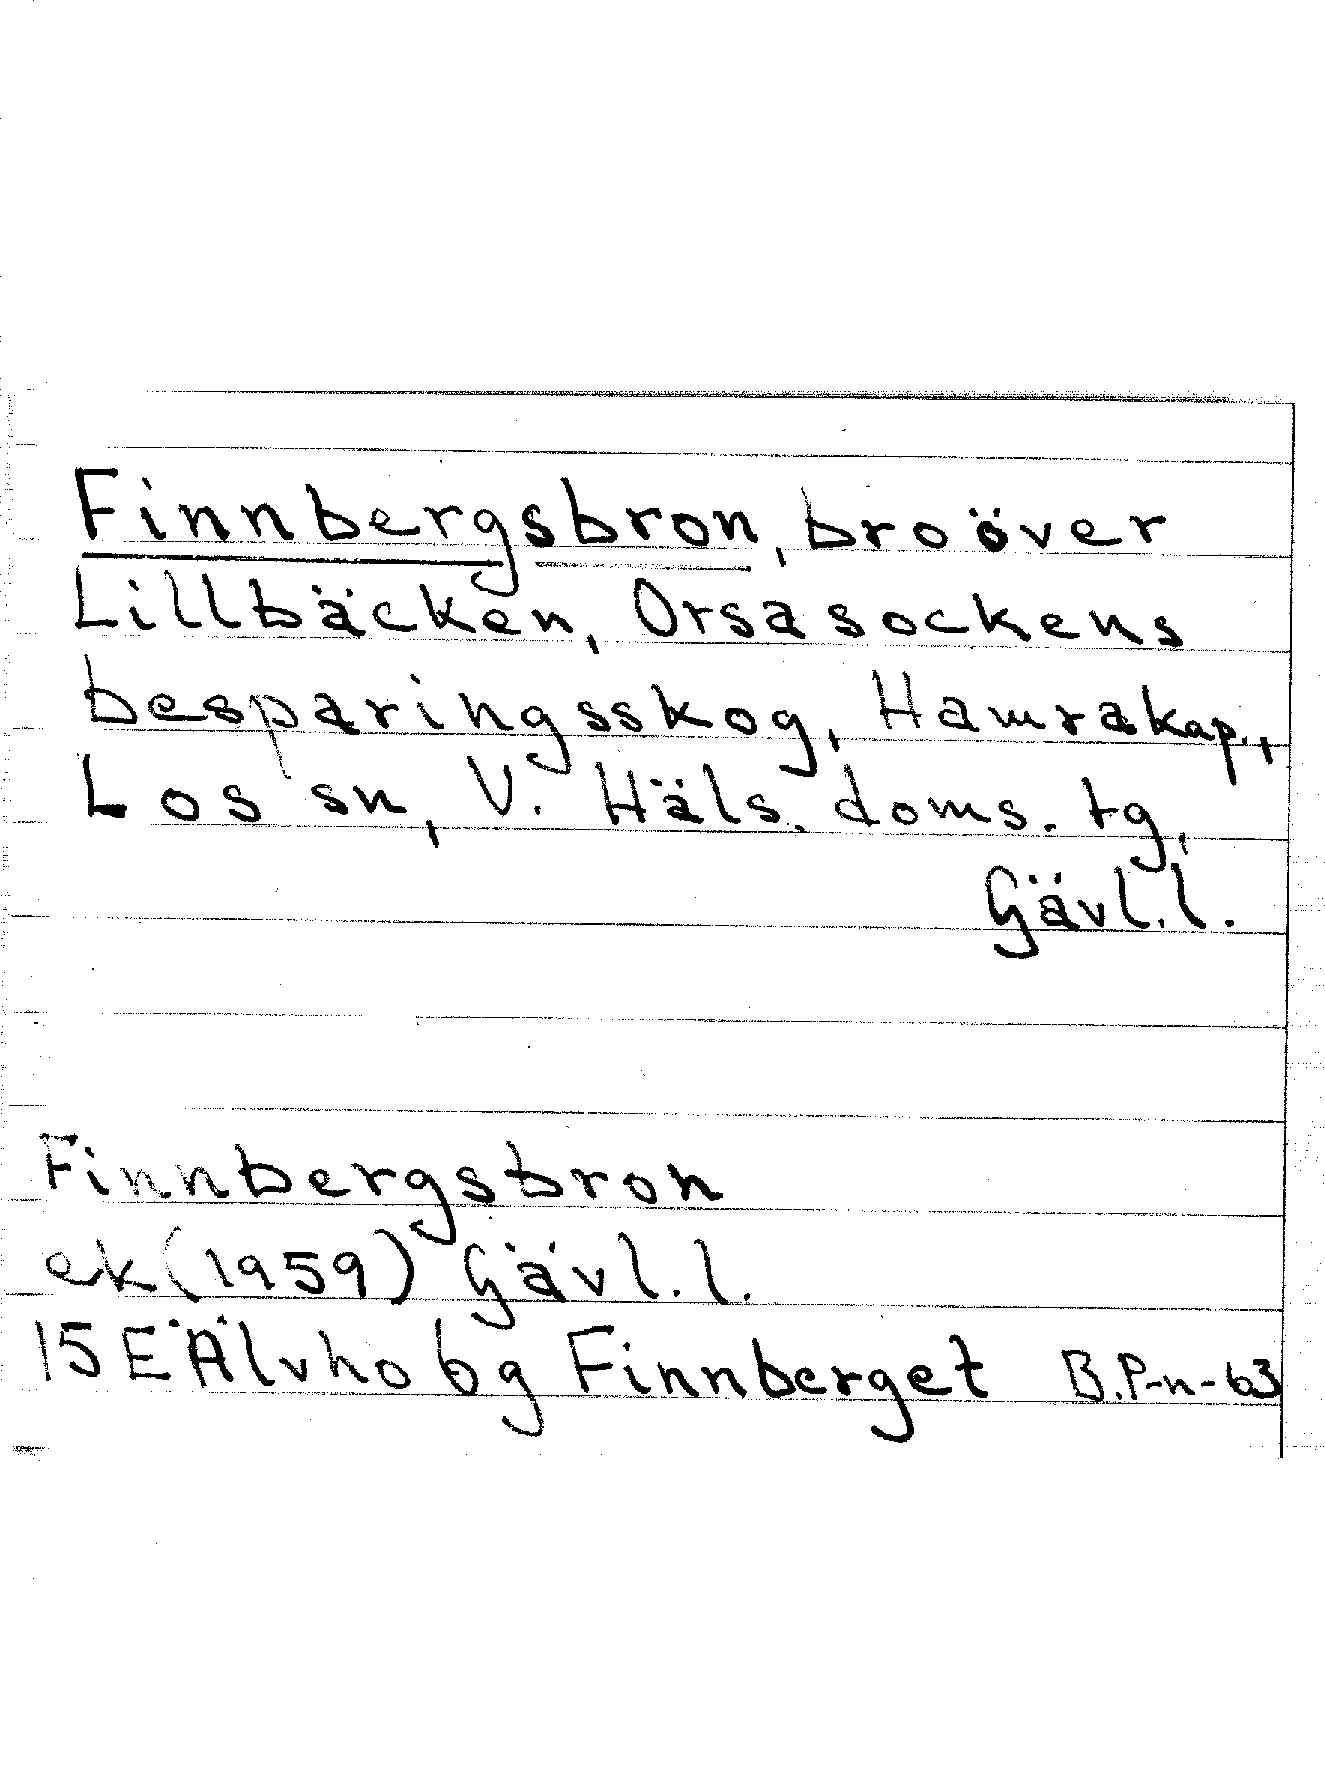 Finnbergsbron, bro över
Lillbäcken, Orsa sockens
besparingsskog, Hamra kap.,
Los sn, V. Häls. doms. tg,
Gävl. l.
Finnbergsbron
ek (1959) Gävl. l.
15E Älvho 6g Finnberget B.P-n-63